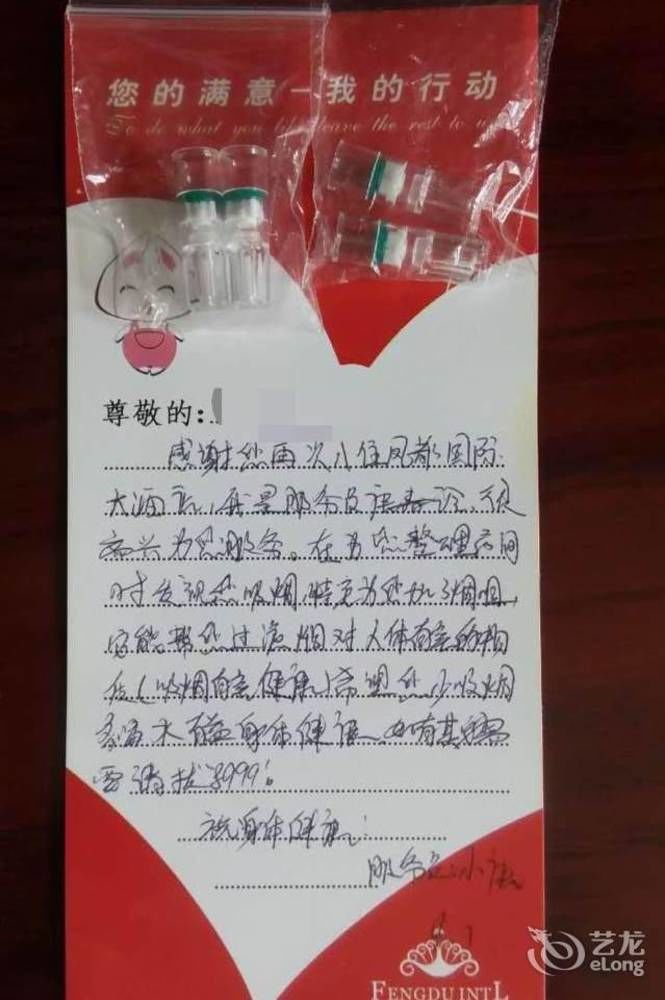 您的满意—我的行动
To do what you like leave the rest to us
尊敬的:
感谢您再次入住凤都国际
大酒店,我是服务员 很
高兴为您服务。在为您整理房间
时发现您吸烟,特意为您加了烟咀,
它能帮您过滤烟对人体有害的物
质(吸烟有害健康)希望您少吸烟
多喝水 身体健康、如有其它需
要请拨3999!
祝身体健康!
服务员:小
FENGDU INT'L
艺龙
eLong